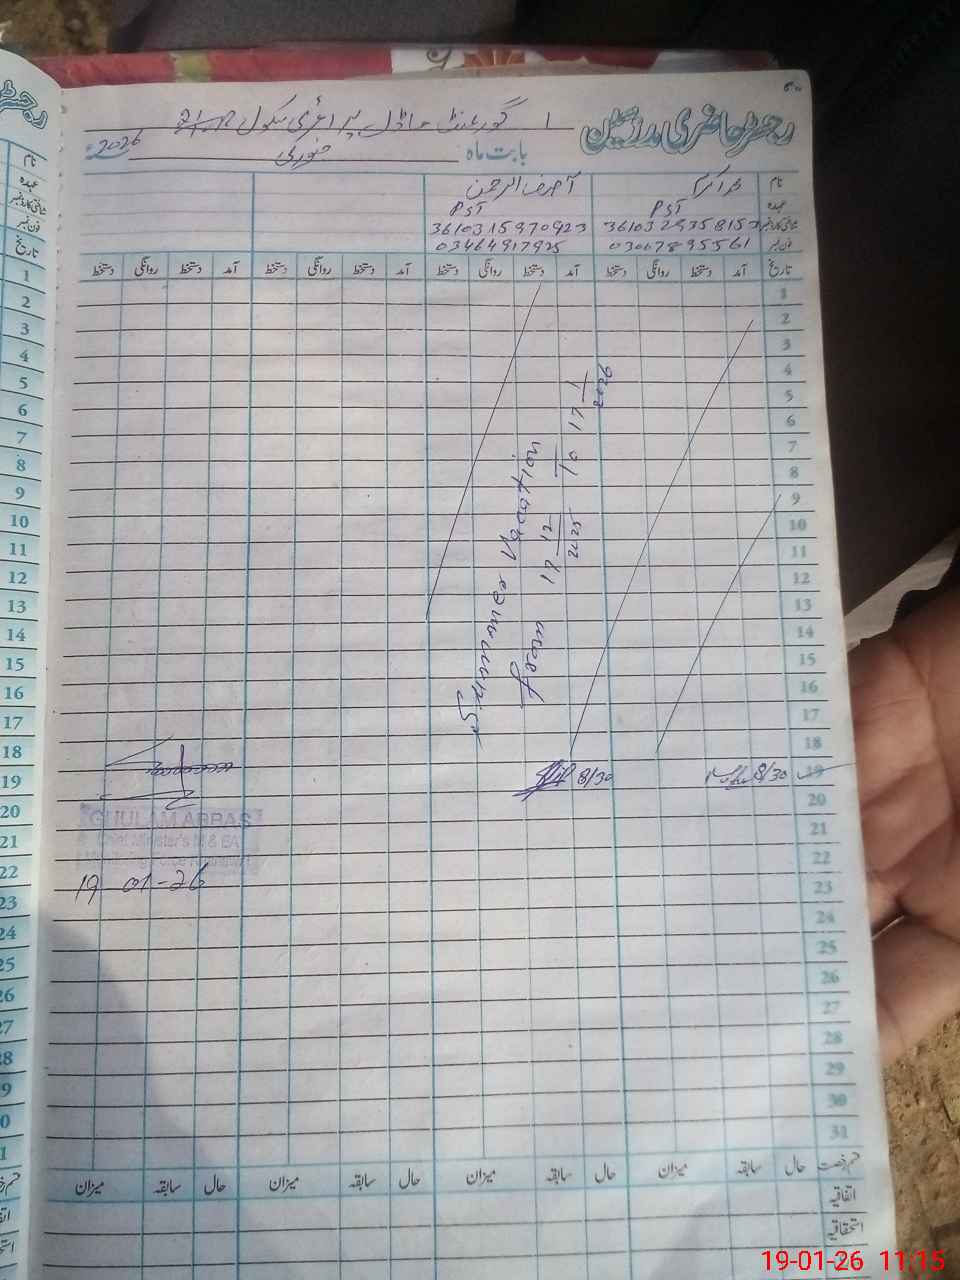 رجسٹر حاضری مدرسین
گورنمنٹ ماڈل پرائمری سکول
بابت ماہ جنوری 2026ء
نام
عہدہ PST PST
شناختی کارڈ نمبر 3610315970923
فون نمبر 03067895561 03464917925
تاریخ آمد دستخط روانگی دستخط آمد دستخط روانگی دستخط آمد دستخط روانگی دستخط آمد دستخط روانگی دستخط
1
2
3
4
5
6
7
8
9
10
11
12
13
14
15
16
17
18
19 8/30 8/30
20
21
22
23
24
25
26
27
28
29
30
31
Summer Vacation
from 17-12-2025 to 17-1-2026
GHULAM ABBAS
Chief Minister's M & EA
19-01-26
قسم رخصت حال سابقہ میزان حال سابقہ میزان حال سابقہ میزان حال سابقہ میزان
اتفاقیہ
استحقاقیہ
19-01-26 11:15